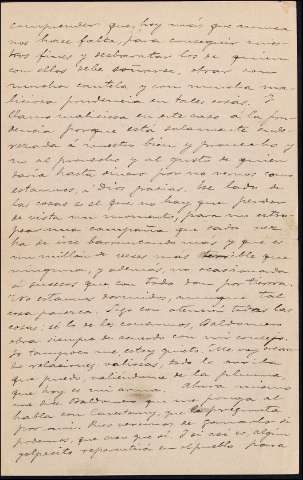 comprender que, hoy más que nunca
nos hace falta, para conseguir nues-
tros fines y desbaratar los de quien
con ellos debe soñarse, obrar con
mucha cautela y con mucha ma-
liciosa prudencia en tales cosas. Y
llamo maliciosa en este caso á la pru-
dencia porque está solamente ende-
rezada á nuestro bien y provecho y
no al provecho y al gusto de quien
daría hasta dinero por no vernos como
estamos, á Dios gracias. Ese lado de
las cosas es el que no hay que perder
de vista un momento, para no estro-
pear una campaña que cada vez
ha de irse barruncando más y que es
un millón de veces más terrible que
ninguna, y además, no ocasionada
á sucesos que con todo dan por tierra.
No estamos dormidos, aunque tal
cosa parezca. Sigo con atención todas las
cosas: sé lo de los Baldomero
obra siempre de acuerdo con mi consejo.
Yo tampoco me estoy quieto. Me voy creando
relaciones valiosas, todo lo más
que puedo, valiéndome de la pluma
que hoy es mi arma. Ahora mismo
me dice Baldomero que me ponga al
habla con que le pregunta
por mí. Pues veremos de ganarlo si
podemos, que creo que sí. Y si así es, algún
golpecito repercutirá en el pueblo para